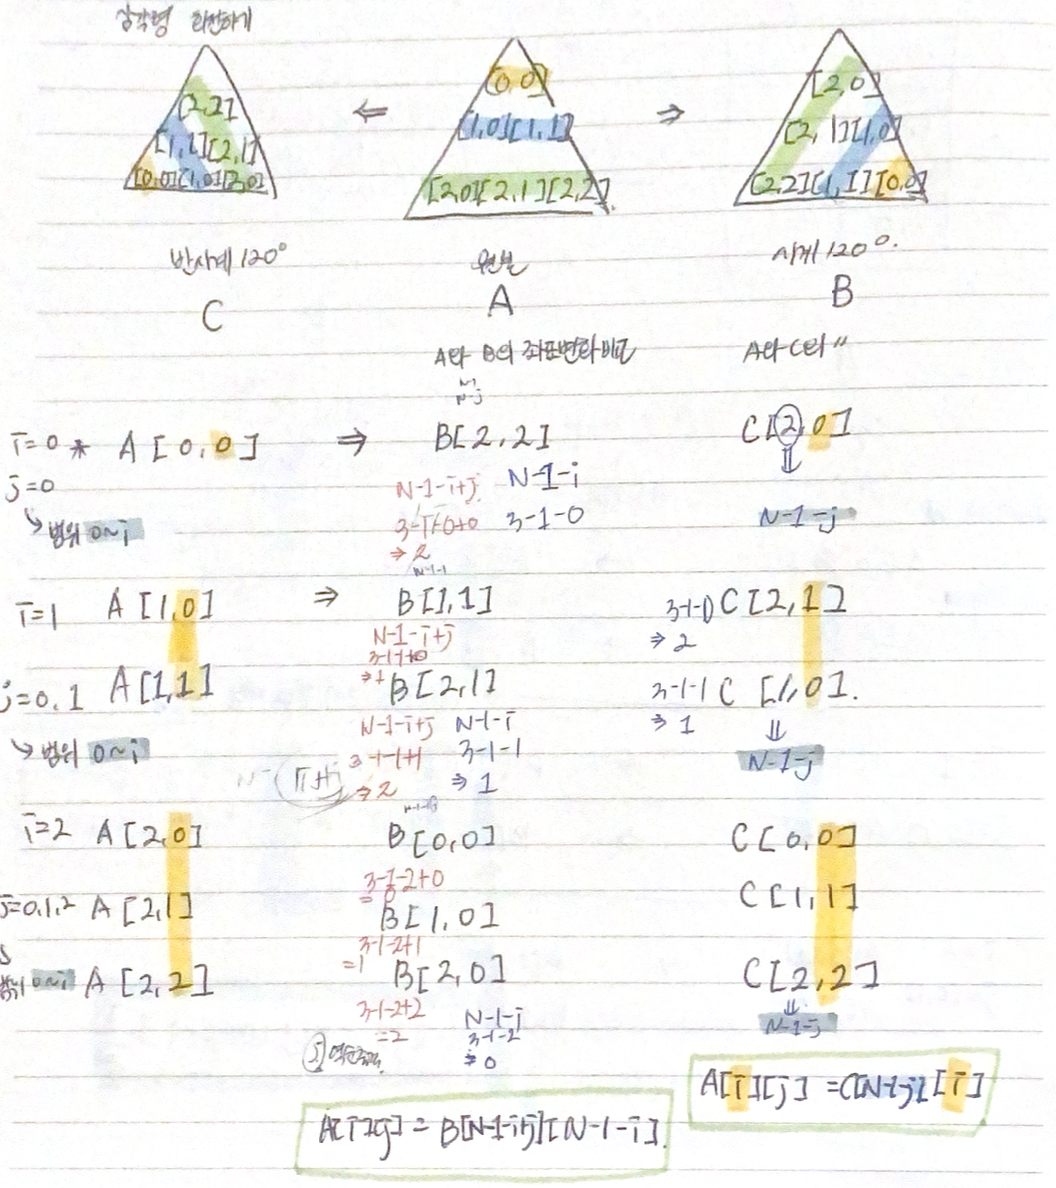 삼각형 회전하기
[2,2] [0,0] [2,0]
⇐ ⇒
[1,1][2,1] [1,0][1,1] [2,1][1,0]
[0,0][1,0][2,0] [2,0][2,1][2,2] [2,2][1,1][0,0]
반시계 120° 원본 시계 120°.
C A B
A와 B의 좌표변화 비교 A와 C의 〃
i=0 * A[0,0] ⇒ B[2,2] C[2,0]
j=0 N-1-i+j N-1-i ⇓
↳ 범위 0~i 3-1-0+0 3-1-0 N-1-j
⇒ 2
N-1-1
i=1 A[1,0] ⇒ B[1,1] 3-1-0 C[2,1]
N-1-i+j ⇒ 2
3-1-1+0
j=0,1 A[1,1] B[2,1] 3-1-1 C[1,0].
N-1-i+j N-1-i ⇒ 1 ⇓
↳ 범위 0~i 3-1-1+1 3-1-1 N-1-j
⇒ 2 ⇒ 1
i=2 A[2,0] B[0,0] C[0,0]
3-1-2+0
= 0
j=0,1,2 A[2,1] B[1,0] C[1,1]
3-1-2+1
=1
범위 0~i A[2,2] B[2,0] C[2,2]
3-1-2+2 N-1-i ⇓
=2 3-1-2 N-1-j
⇒ 0
A[i][j] = B[N-1-i+j][N-1-i].
A[i][j] = C[N-1-j][i]